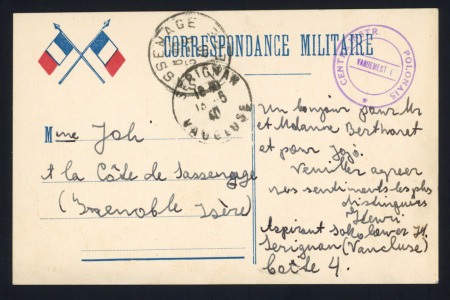 CORRESPONDANCE MILITAIRE
SSENAGE
SERIGNAN
18-5
40
VAUCLUSE
CENTRE
POLONAIS
Mme Joli
A la Côte de Sassenage
(Grenoble Isère)
Un bonjour pour Mr
et Madame Berthoret
et pour Jojo.
Veuillez agréer
nos sentiments les plus
distingués
Henri
Aspirant Sokolower H.
Serignan (Vaucluse)
Boîte 4.